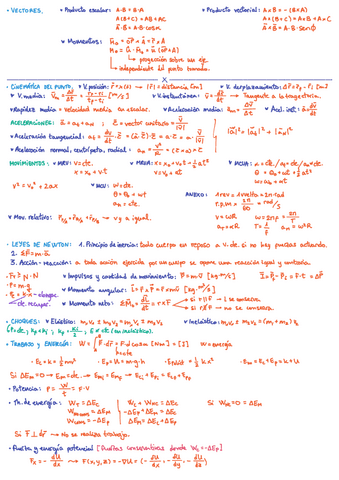 • VECTORES. • Producto escalar: A·B = B·A • Producto vectorial: A×B = -(B×A)
A(B+C) = AB + AC A×(B+C) = A×B + A×C
A·B = A·B·cosα A×B = A·B·senϕ
• Momentos: M₀ = OP × a = P × A
Mₑ = û·M₀ = û(OP×A)
proyección sobre un eje
independiente del punto tomado.
• CINEMÁTICA DEL PUNTO. • V. posición: r = x(t) → |r| = distancia [m] • V. desplazamiento: ΔP = P₂ - P₁ [m]
• V. media: Vm = Δr/Δt = (r₂ - r₁)/(t₂ - t₁) [m/s] • V. instantánea: v = dr/dt → Tangente a la trayectoria.
• Rapidez media = Velocidad media en escalar. • Aceleración media: am = Δv/Δt • Acel. inst.: a = dv/dt
ACELERACIONES: a = at + an ; τ = vector unitario = v/|v|
• Aceleración tangencial: at = dv/dt · τ = (a·τ)·τ = a · v/|v|
|a|² = |at|² + |an|²
• Aceleración normal, centrípeta, radial: an = v²/R
MOVIMIENTOS: • MRU: v = cte. • MRUA: x = x₀ + v₀t + ½at² • MCUA: α = cte / at = cte / an ≠ cte.
x = x₀ + v·t v = v₀ + at θ = θ₀ + ω₀t + ½αt²
ω = ω₀ + αt
v² = v₀² + 2ax • MCU: ω = cte. ANEXO: 1 rev = 1 vuelta = 2π rad
θ = θ₀ + ωt r.p.m × 2π/60 = rad/s
an = cte. v = ωR ω = 2πν = 2π/T
• Mov. relativo: → v y a igual. at = αR T = 1/f an = ω²R
• LEYES DE NEWTON: 1. Principio de inercia: todo cuerpo en reposo o v. cte. si no hay fuerzas actuando.
2. ΣF = m·a
3. Acción-reacción: a toda acción ejercida por un cuerpo se opone una reacción igual y contraria.
• Fr ≥ N·μ • Impulsos y cantidad de movimiento: P = m·v [kg·m/s] I = P₂ - P₁ = F·t = ΔP
• P = m·g
• Fe = k·x → elonga. • Momento angular: L = r × P = r × mv [kg·m²/s]
cte. recuper. • Momento neto: ΣM₀ = dL/dt = r × F si r ∥ F → L se conserva
si r ∦ F → no se conserva.
• CHOQUES: • Elástico: m₁v₁ + m₂v₂ = m₁v₁ + m₂v₂ • Inelástico: m₁v₁ + m₂v₂ = (m₁ + m₂) v₂
• TRABAJO y ENERGÍA: W = ∫F·dr = F·d cosα [N·m] = [J] W = energía
F = cte
• Ec = K = ½mv² • Ep = U = m·g·h • Epelást = ½kx² • Em = Ec + Ep = K + U
Si ΔEm = 0 → Em = cte. → Em₁ = Em₂ → Ec₁ + Ep₁ = Ec₂ + Ep₂
• Potencia: P = W/t = F·v
• Th. de energía: Wt = ΔEc Wc + Wnc = ΔEc Si Wnc = 0 = ΔEm
-ΔEp + ΔEm = ΔEc
Wcons = -ΔEp ΔEm = ΔEc + ΔEp
Si F ⊥ dr → No se realiza trabajo.
• Fuerza y energía potencial [Fuerzas conservativas donde Wc = -ΔEp]
Fx = -du/dx → F(x,y,z) = -∇U = (-du/dx, -du/dy, -du/dz)